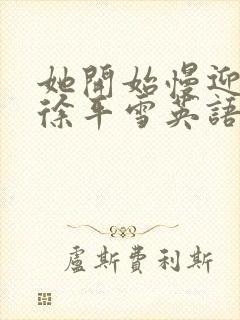 她開始慢迎
徐平雪英語
盧斯費利斯